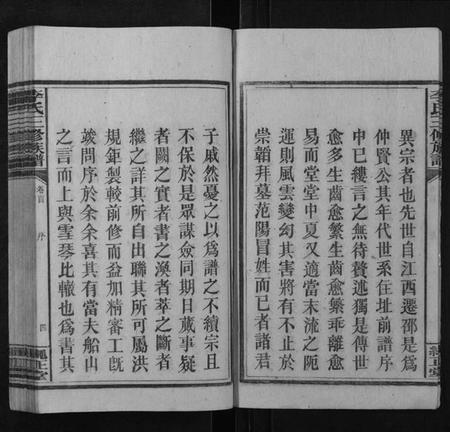 異宗者也先世自江西遷邵是爲
仲賢公其年代世系住址前譜序
中已縷言之無待贅述獨是傳世
愈多生齒愈繁生齒愈繁乖離愈
易而堂堂中夏又適當末流之阨
運則風雲變幻其害將有不止於
崇韜拜墓范陽冒姓而已者諸君
子戚然憂之以爲譜之不續宗且
不保於是眾謀僉同期日蕆事疑
者闕之實者書之渙者萃之斷者
繼之詳其所自出聯其所可屬洪
規鉅製較前修而益加精審工旣
竣問序於余余喜其有當夫船山
之言而上與雪琴比轍也爲書其
李氏三修族譜
卷首
序
四